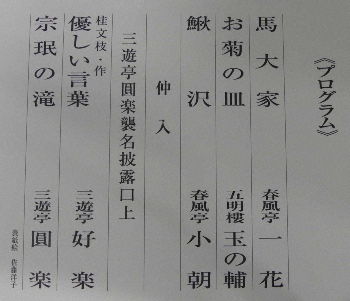 《プログラム》
馬大家 春風亭 一花
お菊の皿 五明樓 玉の輔
鰍沢 春風亭 小朝
仲入
三遊亭圓楽襲名披露口上
桂文枝・作
優しい言葉 三遊亭 好楽
宗珉の滝 三遊亭 圓楽
表紙絵 佐藤洋子